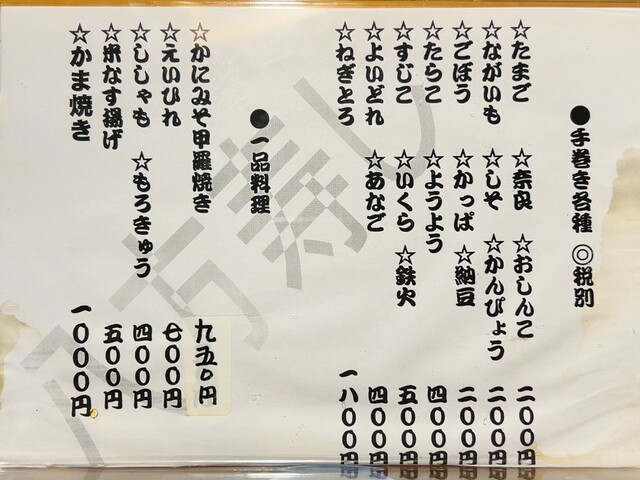 ●手巻き各種 ◎税別
☆たまご ☆奈良 ☆おしんこ 二〇〇円
☆ながいも ☆しそ ☆かんぴょう 二〇〇円
☆ごぼう ☆かっぱ ☆納豆 二〇〇円
☆たらこ ☆ようよう 四〇〇円
☆すじこ ☆いくら ☆鉄火 五〇〇円
☆よいどれ ☆あなご 四〇〇円
☆ねぎとろ 一八〇〇円
●一品料理
☆かにみそ甲羅焼き 九五〇円
☆えいひれ 七〇〇円
☆ししゃも ☆もろきゅう 四〇〇円
☆米なす揚げ 五〇〇円
☆かま焼き 一〇〇〇円
八方寿し